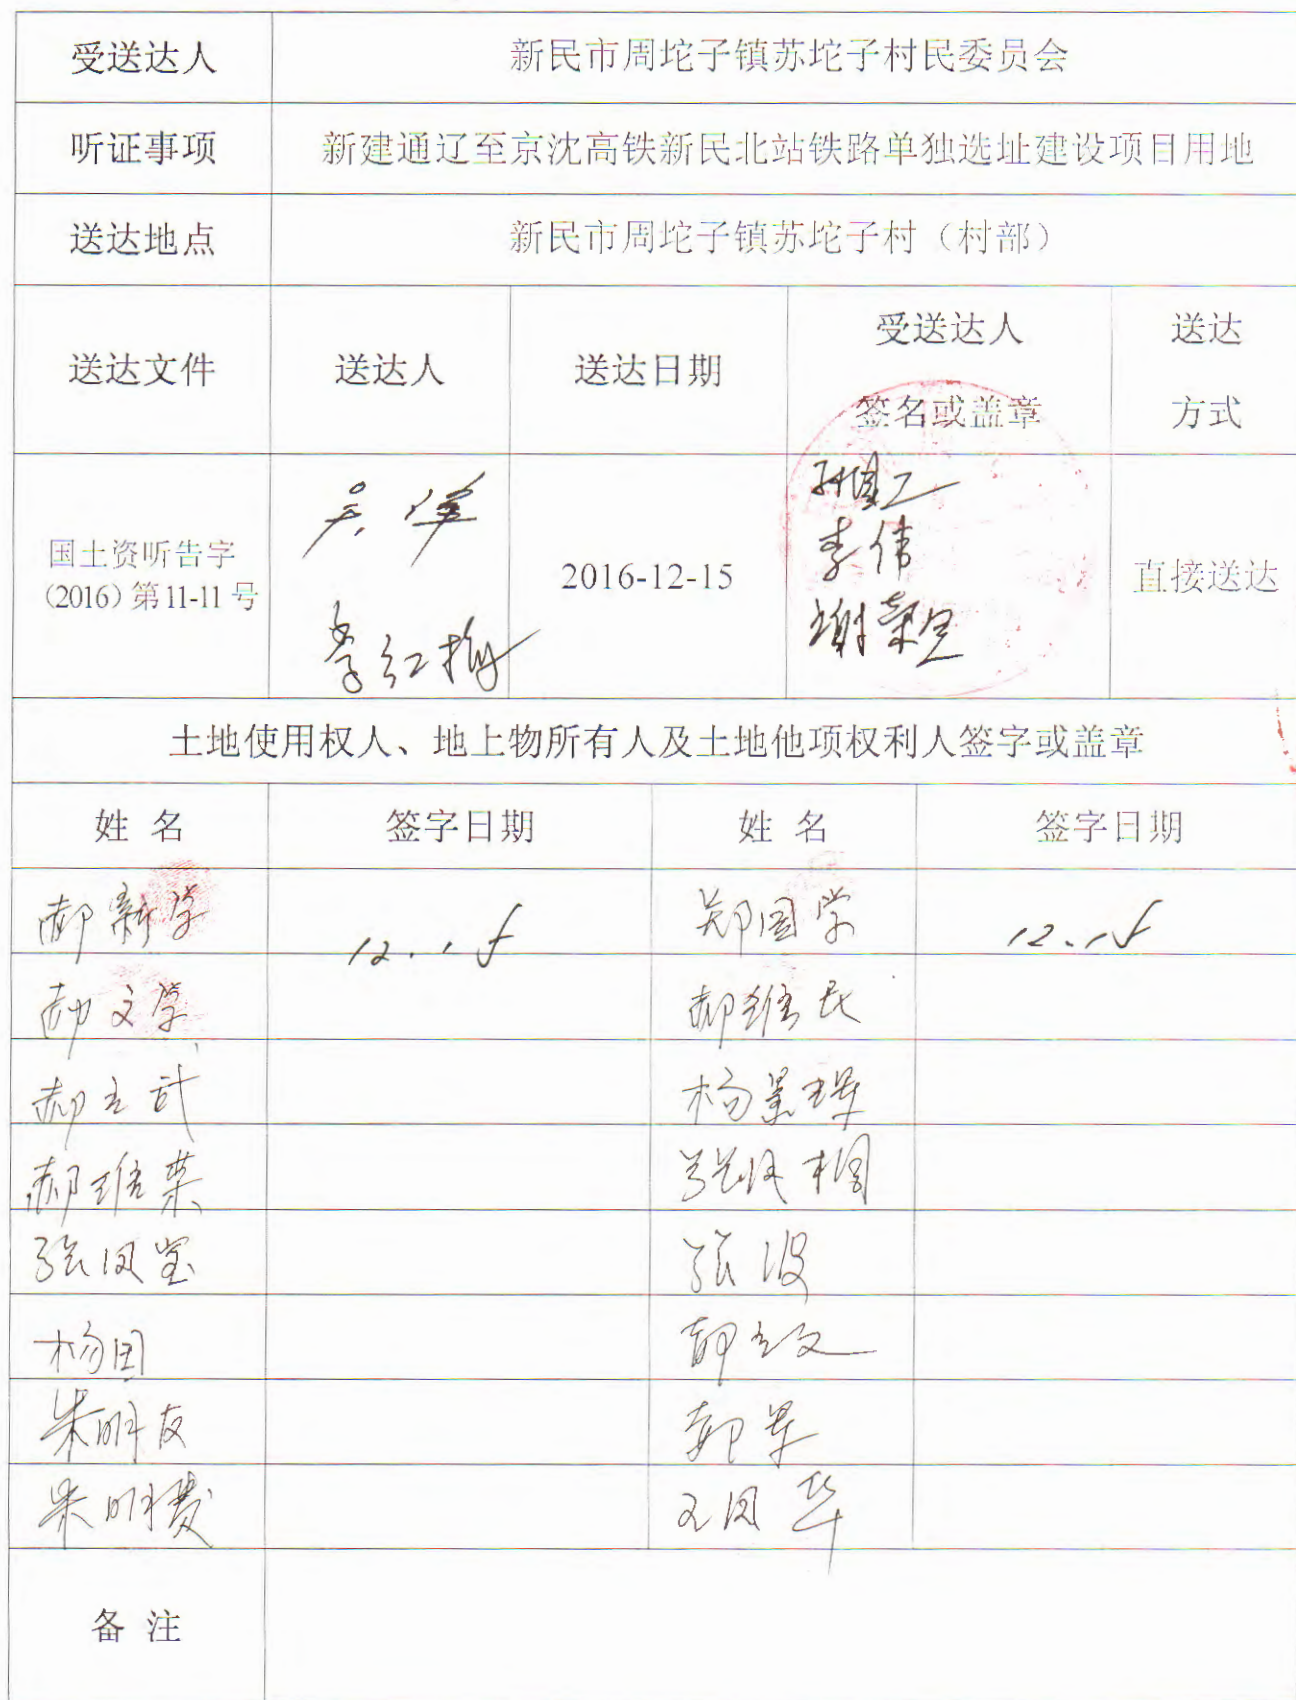 受送达人 新民市周坨子镇苏坨子村民委员会
听证事项 新建通辽至京沈高铁新民北站铁路单独选址建设项目用地
送达地点 新民市周坨子镇苏坨子村（村部）
送达文件 送达人 送达日期 受送达人 签名或盖章 送达 方式
国土资听告字
（2016）第11-11号
李红梅
2016-12-15
李伟
直接送达
土地使用权人、地上物所有人及土地他项权利人签字或盖章
姓 名 签字日期 姓 名 签字日期
郝新学 12.15 郑国学 12.15
郝文学 郝维民
郝维荣
张凤宝 张波
杨国
朱明友 郝军
王凤华
备 注